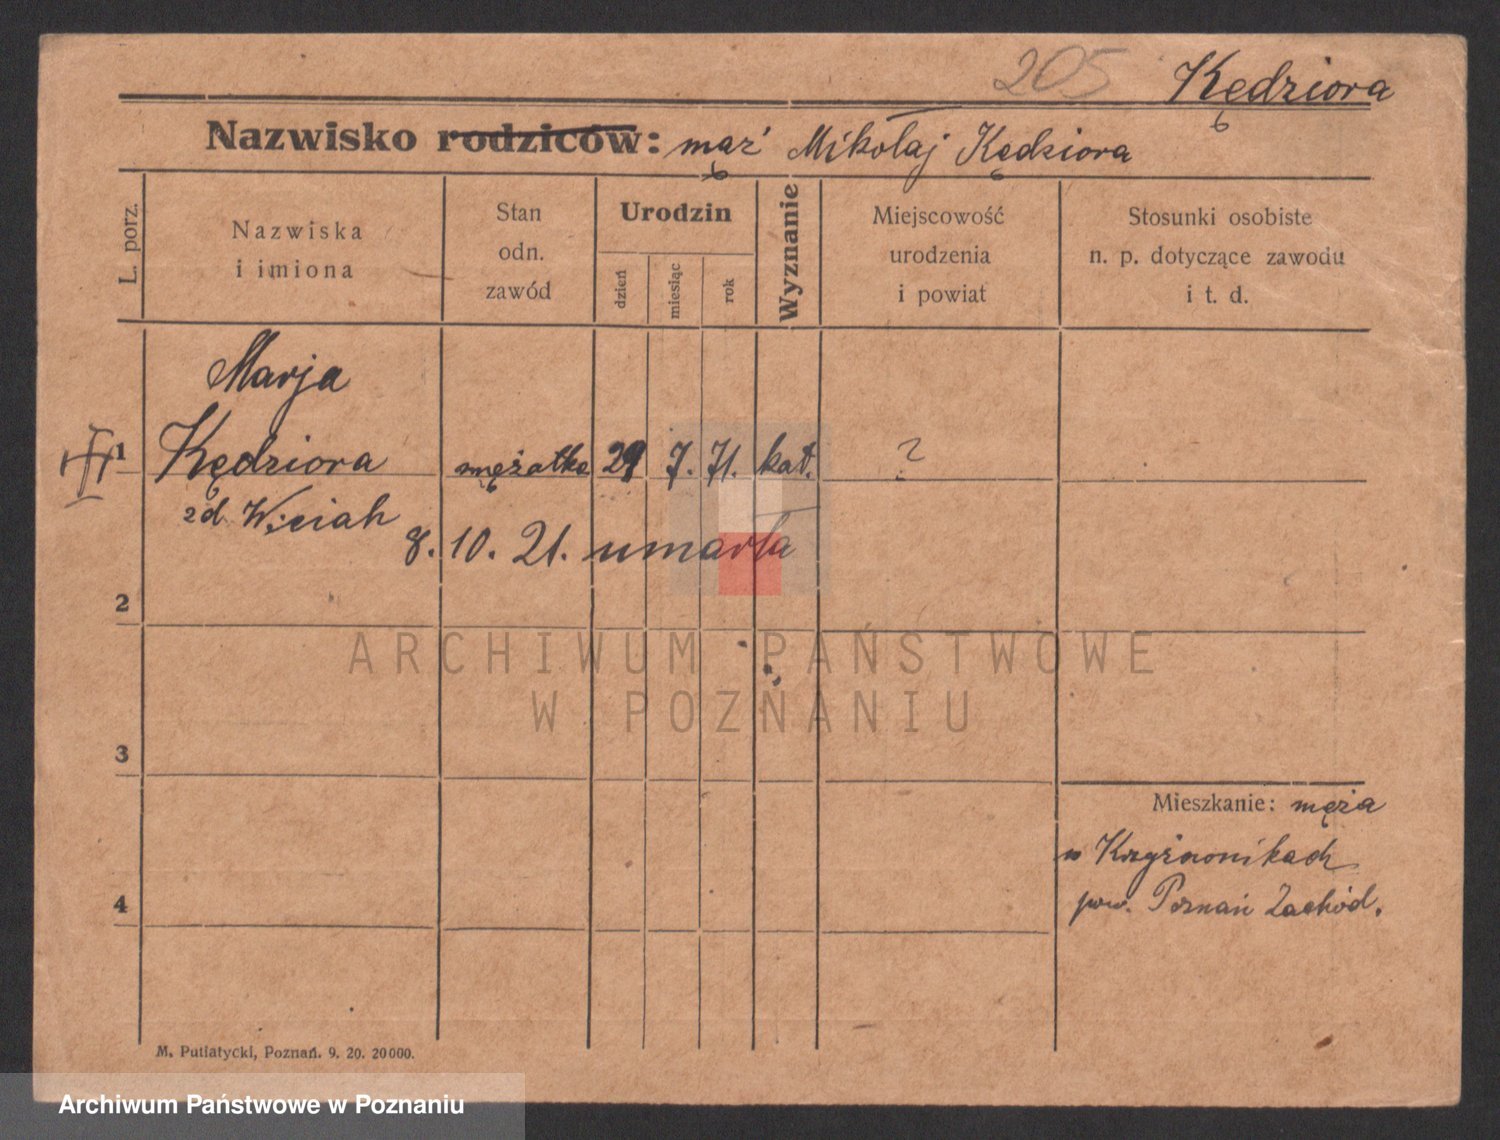 205 Kędziora
Nazwisko rodziców: mąż Mikołaj Kędziora
L. porz.
Nazwiska
i imiona
Stan
odn.
zawód
Urodzin
dzień
miesiąc
rok
Wyznanie
Miejscowość
urodzenia
i powiat
Stosunki osobiste
n. p. dotyczące zawodu
i t. d.
Marja
1 Kędziora mężatka 29 7. 71. kat. ?
zd Wiciak
8. 10. 21. umarła
2
ARCHIWUM PAŃSTWOWE
W POZNANIU
3
Mieszkanie: męża
w Krzyżownikach
pow. Poznań Zachód.
4
M. Putiatycki, Poznań. 9. 20. 20000.
Archiwum Państwowe w Poznaniu